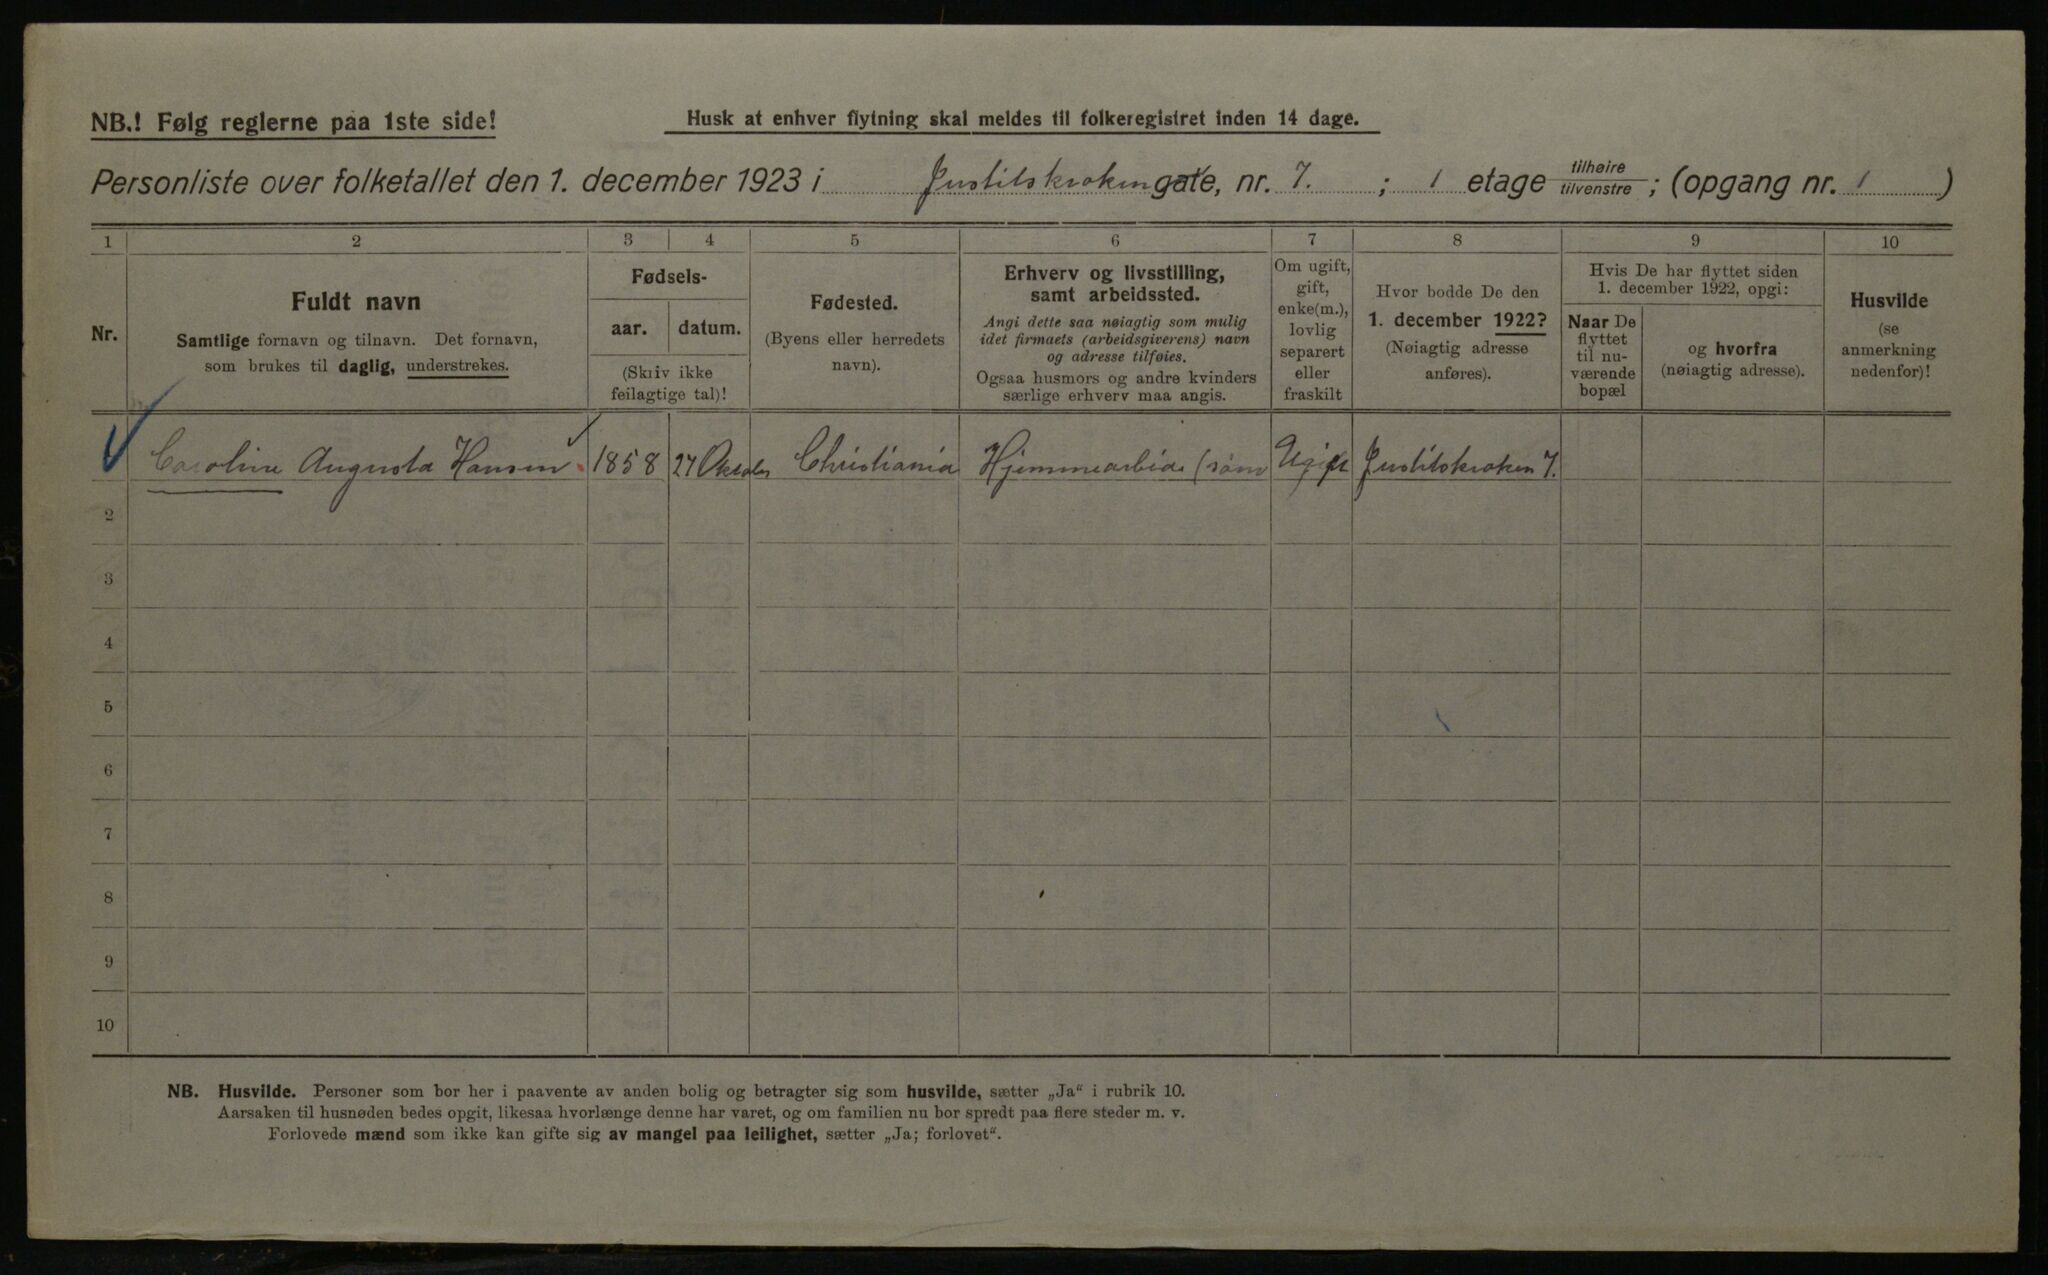 NB.! Følg reglerne paa 1ste side!
Husk at enhver flytning skal meldes til folkeregistret inden 14 dage.
Personliste over folketallet den 1. december 1923 i Justitskroken gate, nr. 7. ; 1 etage tilhøire tilvenstre ; (opgang nr. 1 )
1 2 3 4 5 6 7 8 9 10
Nr.
Fuldt navn
Samtlige fornavn og tilnavn. Det fornavn,
som brukes til daglig, understrekes.
Fødsels-
aar. datum.
(Skriv ikke
feilagtige tal)!
Fødested.
(Byens eller herredets
navn).
Erhverv og livsstilling,
samt arbeidssted.
Angi dette saa nøiagtig som mulig
idet firmaets (arbeidsgiverens) navn
og adresse tilføies.
Ogsaa husmors og andre kvinders
særlige erhverv maa angis.
Om ugift,
gift,
enke(m.),
lovlig
separert
eller
fraskilt
Hvor bodde De den
1. december 1922?
(Nøiagtig adresse
anføres).
Hvis De har flyttet siden
1. december 1922, opgi:
Naar De
flyttet
til nu-
værende
bopæl
og hvorfra
(nøiagtig adresse).
Husvilde
(se
anmerkning
nedenfor)!
Caroline Augusta Hansen 1858 27 Oktober Christiania Hjemmearbeide (søm Ugift Justitskroken 7.
2
3
4
5
6
7
8
9
10
NB. Husvilde. Personer som bor her i paavente av anden bolig og betragter sig som husvilde, sætter „Ja“ i rubrik 10.
Aarsaken til husnøden bedes opgit, likesaa hvorlænge denne har varet, og om familien nu bor spredt paa flere steder m. v.
Forlovede mænd som ikke kan gifte sig av mangel paa leilighet, sætter „Ja; forlovet“.